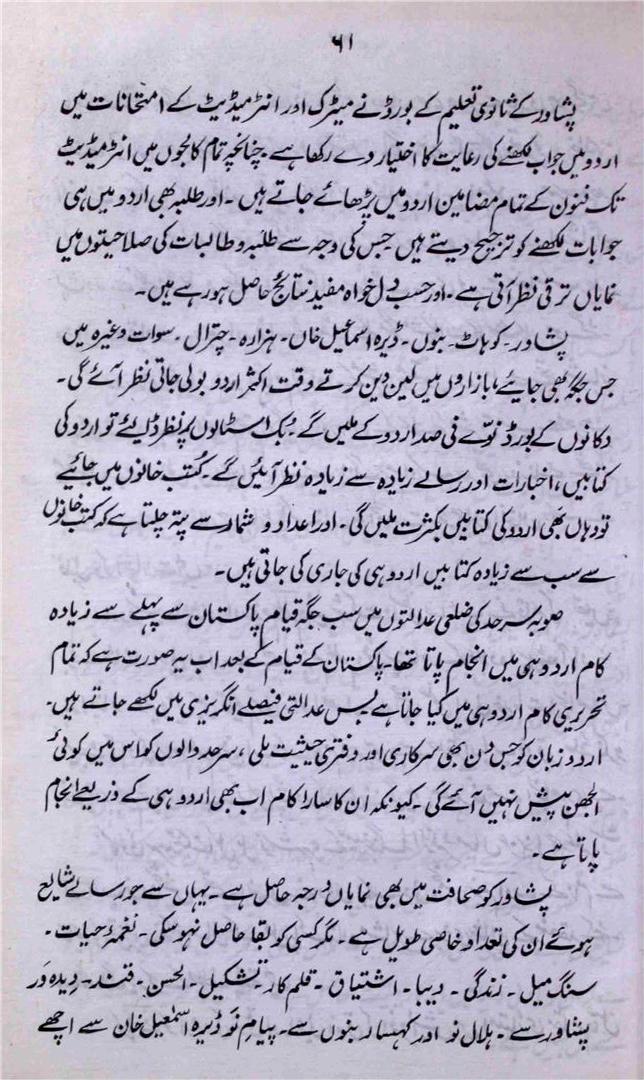 ۶۱
پشاور کے ثانوی تعلیم کے بورڈ نے میٹرک اور انٹر میڈیٹ کے امتحانات میں
اردو میں جواب لکھنے کی رعایت کا اختیار دے رکھا ہے۔ چنانچہ تمام کالجوں میں انٹر میڈیٹ
تک فنون کے تمام مضامین اردو میں پڑھائے جاتے ہیں۔ اور طلبہ بھی اردو میں ہی
جوابات لکھنے کو ترجیح دیتے ہیں جس کی وجہ سے طلبہ و طالبات کی صلاحیتوں میں
نمایاں ترقی نظر آتی ہے۔ اور حسب دل خواہ مفید نتائج حاصل ہو رہے ہیں۔
پشاور۔ کوہاٹ۔ بنوں۔ ڈیرہ اسماعیل خاں۔ ہزارہ۔ چترال۔ سوات وغیرہ میں
جس جگہ بھی جایئے، بازاروں میں لین دین کرتے وقت اکثر اردو بولی جاتی نظر آئے گی۔
دکانوں کے بورڈ نوے فی صد اردو کے ملیں گے۔ بک اسٹالوں پر نظر ڈالئے تو اردو کی
کتابیں، اخبارات اور رسالے زیادہ سے زیادہ نظر آئیں گے۔ کتب خانوں میں جائیے
تو وہاں بھی اردو کی کتابیں بکثرت ملیں گی۔ اور اعداد و شمار سے پتہ چلتا ہے کہ کتب خانوں
سے سب سے زیادہ کتابیں اردو ہی کی جاری کی جاتی ہیں۔
صوبہ سرحد کی ضلعی عدالتوں میں سب جگہ قیام پاکستان سے پہلے سے زیادہ
کام اردو ہی میں انجام پاتا تھا۔ پاکستان کے قیام کے بعد اب یہ صورت ہے کہ تمام
تحریری کام اردو ہی میں کیا جاتا ہے بس عدالتی فیصلے انگریزی میں لکھے جاتے ہیں۔
اردو زبان کو جس دن بھی سرکاری اور دفتری حیثیت ملی، سرحد والوں کو اس میں کوئی
الجھن پیش نہیں آئے گی۔ کیونکہ ان کا سارا کام اب بھی اردو ہی کے ذریعے انجام
پاتا ہے۔
پشاور کو صحافت میں بھی نمایاں درجہ حاصل ہے۔ یہاں سے جو رسالے شایع
ہوئے ان کی تعداد خاصی طویل ہے۔ مگر کسی کو بقا حاصل نہو سکی۔ نغمۂ حیات۔
سنگ میل۔ زندگی۔ دیبا۔ اشتیاق۔ قلم کار۔ تشکیل۔ الحسن۔ قند۔ دیدہ ور
پشاور سے۔ ہلال نو اور کہسار بنوں سے۔ پیام نو ڈیرہ اسمعیل خان سے اچھے